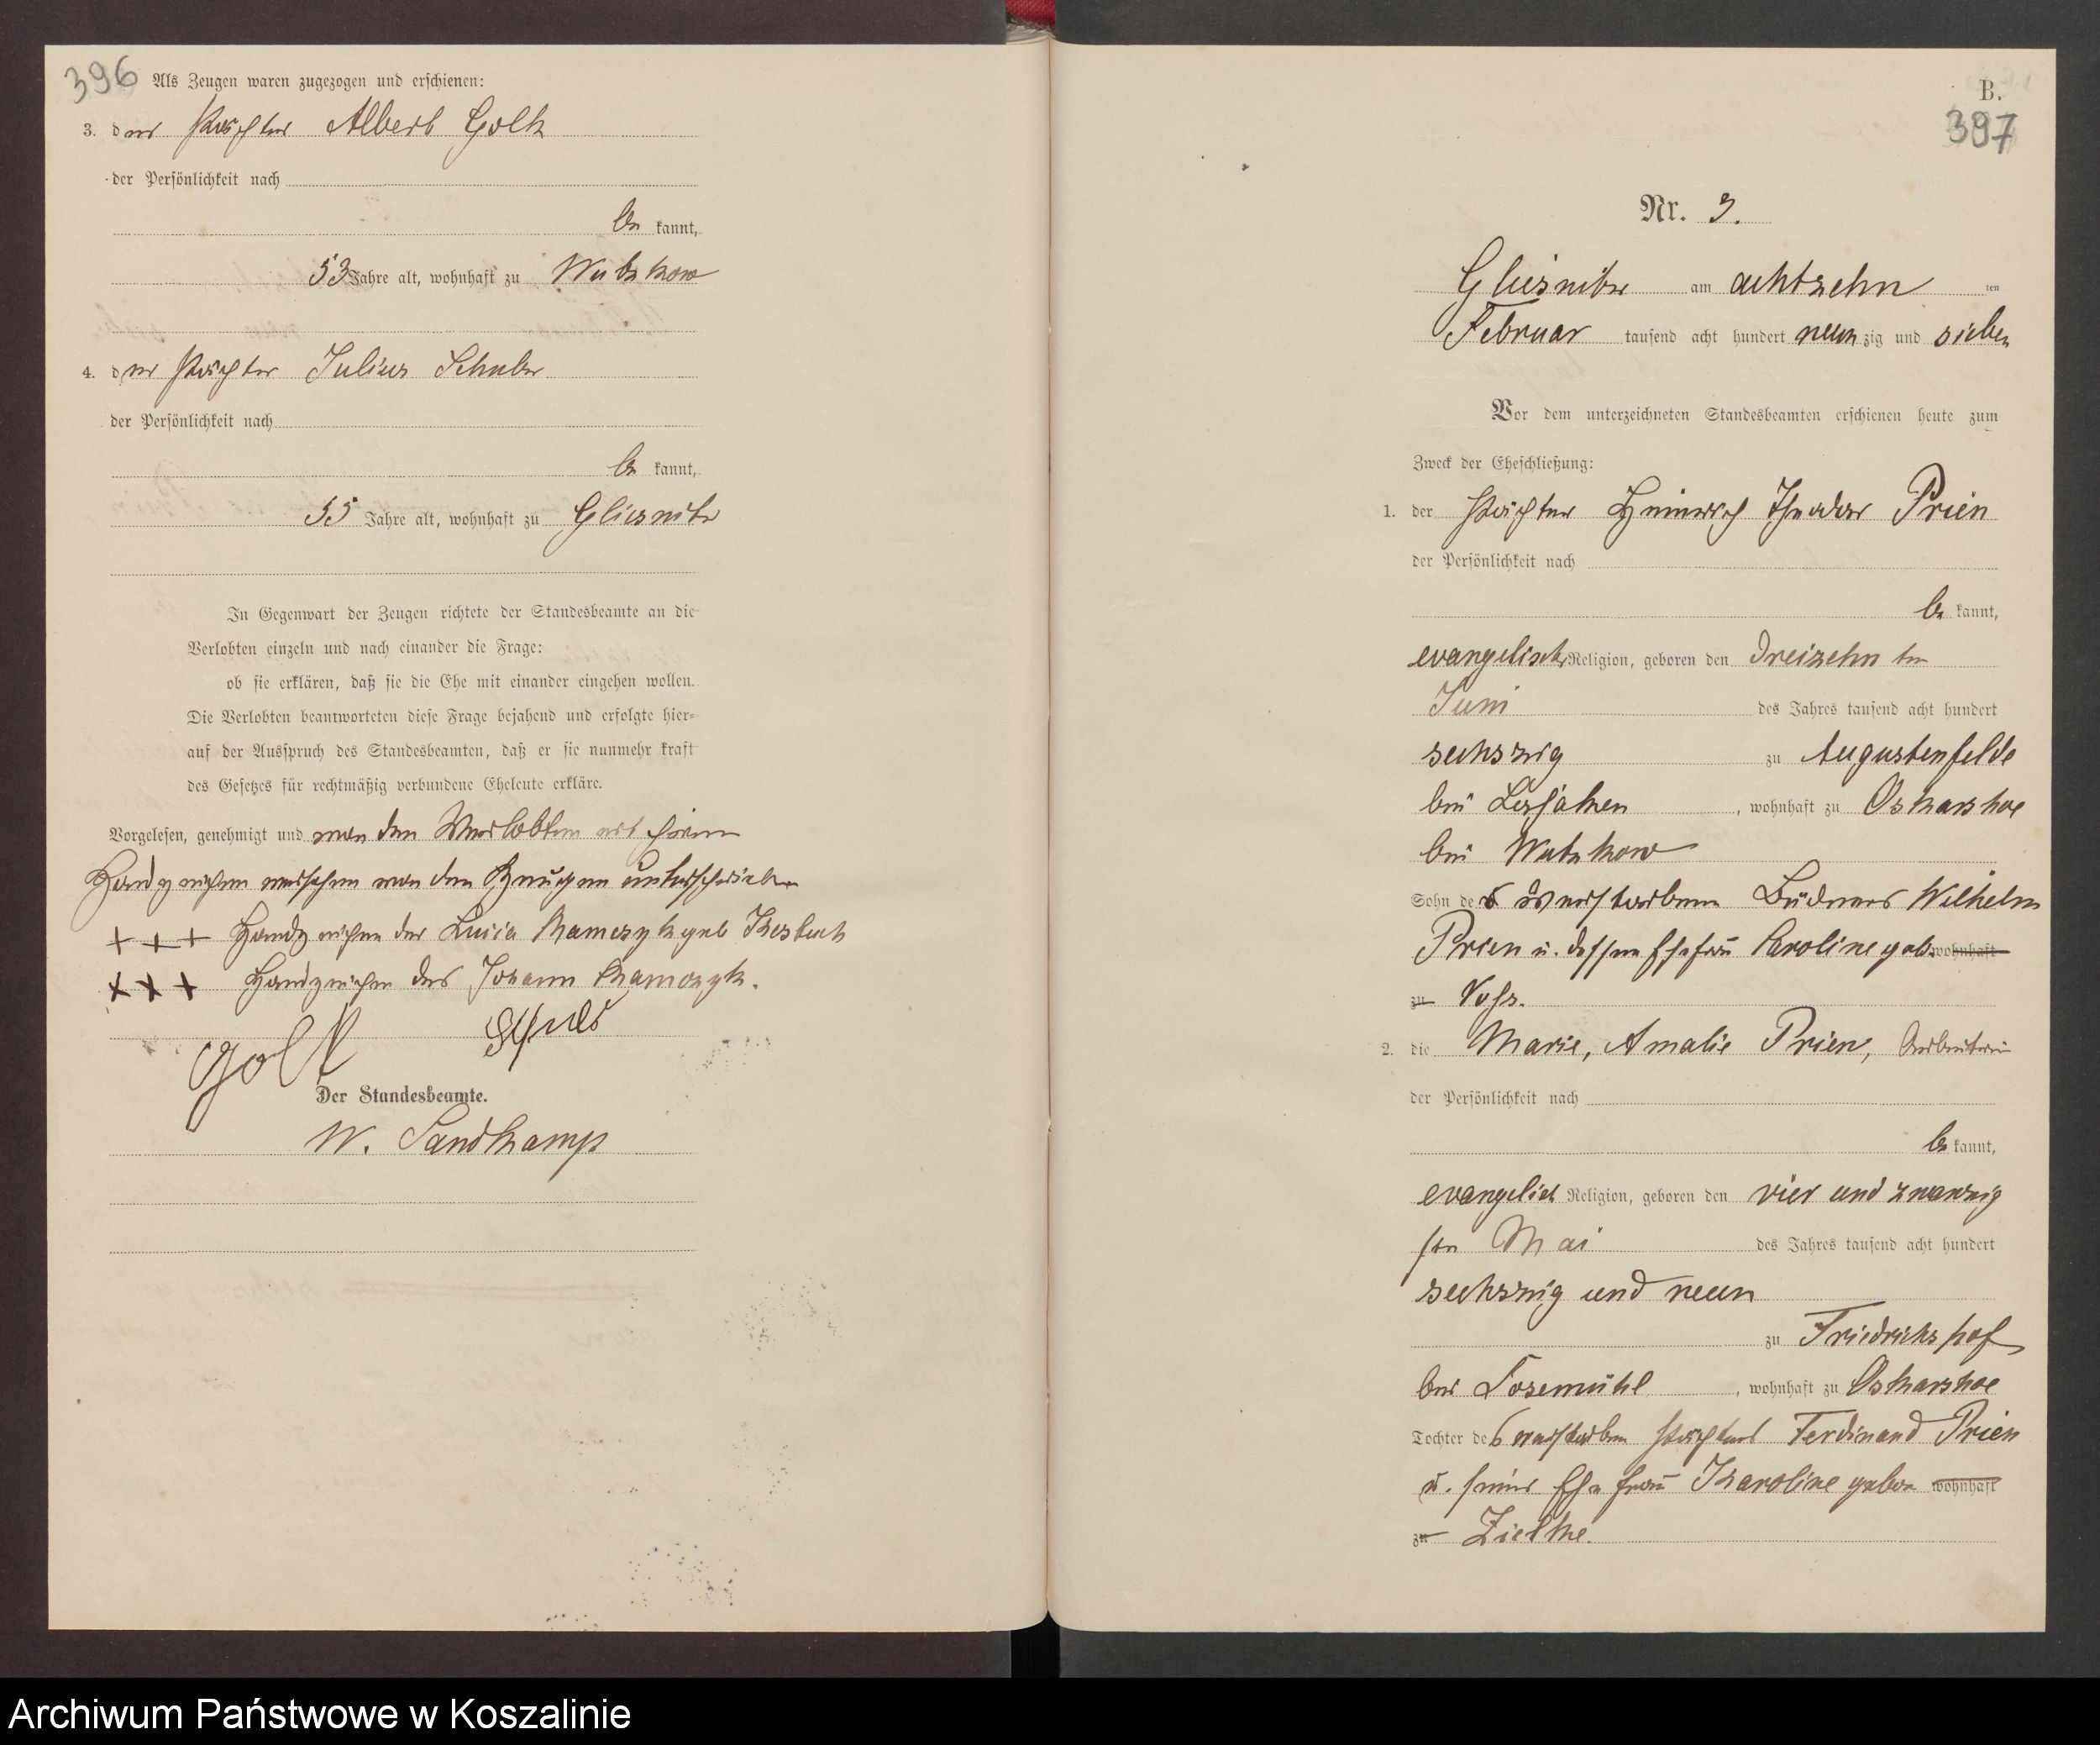 396 Als Zeugen waren zugezogen und erschienen:
3. der Pächter Albert Golk
der Persönlichkeit nach
be kannt,
53 Jahre alt, wohnhaft zu Wutzkow
4. der Pächter Julius Schulz
der Persönlichkeit nach
be kannt,
55 Jahre alt, wohnhaft zu Gliesnitz
In Gegenwart der Zeugen richtete der Standesbeamte an die
Verlobten einzeln und nach einander die Frage:
ob sie erklären, daß sie die Ehe mit einander eingehen wollen.
Die Verlobten beantworteten diese Frage bejahend und erfolgte hier-
auf der Ausspruch des Standesbeamten, daß er sie nunmehr kraft
des Gesetzes für rechtmäßig verbundene Eheleute erkläre.
Vorgelesen, genehmigt und von den Verlobten mit ihren
Handzeichen versehen von den Zeugen unterschrieben
+ + + Handzeichen der Luisa geb
+ + + Handzeichen des Johann
Golk
Der Standesbeamte.
W. Sandkamp
B.
397
Nr. 3.
Gliesnitz am achtzehn ten
Februar tausend acht hundert neun zig und sieben
Vor dem unterzeichneten Standesbeamten erschienen heute zum
Zweck der Eheschließung:
1. der Pächter Heinrich Theodor Prien
der Persönlichkeit nach
be kannt,
evangelisch Religion, geboren den dreizehn ten
Juni des Jahres tausend acht hundert
sechszig zu Augustenfelde
bei , wohnhaft zu Oskarshoe
bei Wutzkow
Sohn des verstorbenen Büdners Wilhelm
Prien u. dessen Ehefrau Caroline geb. wohnhaft
zu Voß.
2. die Marie, Amalie Prien, Arbeiterin
der Persönlichkeit nach
be kannt,
evangelisch Religion, geboren den vier und zwanzig
sten Mai des Jahres tausend acht hundert
sechszig und neun
zu Friedrichshof
bei Dosemühl, wohnhaft zu Oskarshoe
Tochter des verstorben Pächters Ferdinand Prien
u. seiner Ehefrau Karoline gebor wohnhaft
zu Zielke.
Archiwum Państwowe w Koszalinie